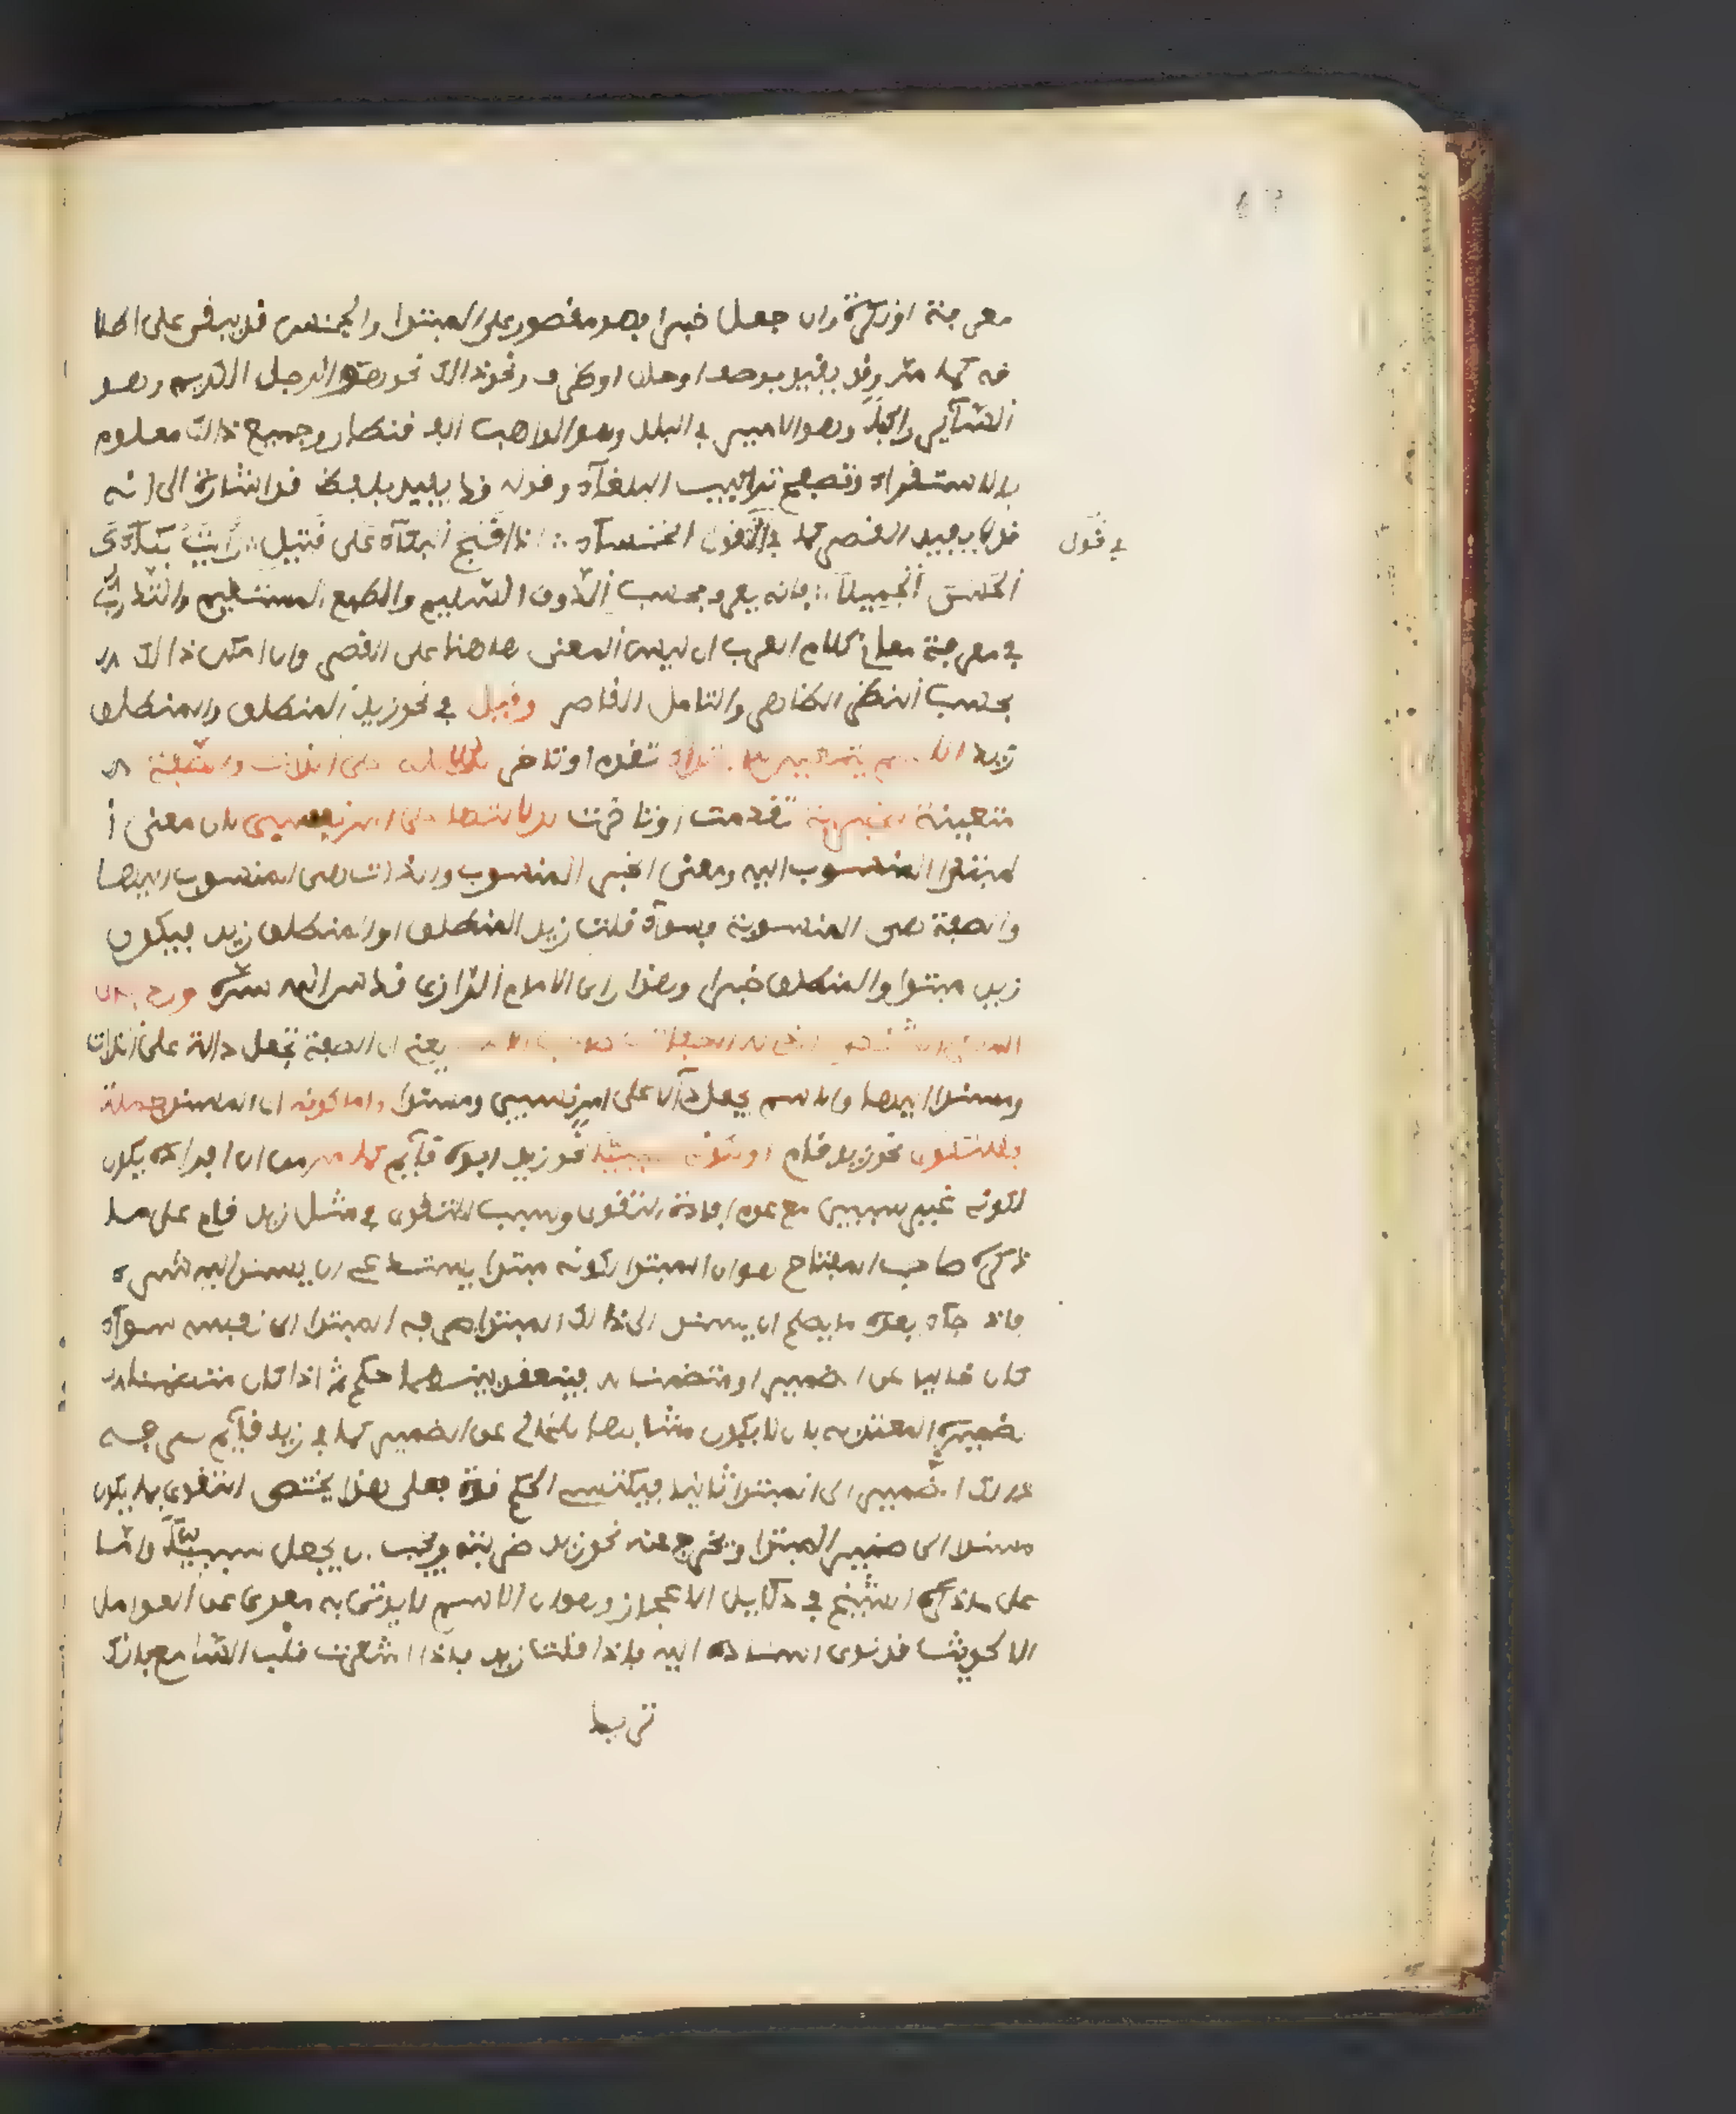 معرفة او نكرة وان جعل خبرا فهو مقصور على المبتدا والجنس قد يبقى على اطلا
قه كما مر وقد يقيد بوصف او حال او ظرف ونحو ذالك نحو هو الرجل الكريم وهو
السائر راكبا وهو الامير في البلد وهو الواهب الف قنطار وجميع ذالك معلوم
بالاستقراء وتصفح تراكيب البلغاء وقوله قد يفيد بلفظ قد اشارة الى انه
قد لا يفيد القصر كما في قول الخنساء اذا قبح البكاء على قتيل رايت بكاءك
في قول
الحسن الجميلا فانه يعرف بحسب الذوق السليم والطبع المستقيم والتدرب
في معرفة معاني كلام العرب ان ليس المعنى هاهنا على القصر وان امكن ذالك
بحسب النظر الظاهر والتامل القاصر وقيل في نحو زيد المنطلق والمنطلق
زيد الاسم تقدم او تاخر
متعينة تقدمت او تاخرت لدلالتها على امر نسبي لان معنى ا
لمبتدا المنسوب اليه ومعنى الخبر المنسوب والذات هي المنسوب اليها
والصفة هي المنسوبة فسواء قلت زيد المنطلق او المنطلق زيد فيكون
زيد مبتدا والمنطلق خبرا وهذا راى الامام الرازي قدس الله سره ورد
يعني ان الصفة تجعل دالة على الذات
ومسندا اليها والاسم يجعل دالا على امر نسبي ومسندا واما كونه اى المسند جملة
فللتقوى نحو زيد قام او لكونه سببيا نحو زيد ابوه قائم كما مر من ان افراده يكون
لكونه غير سببي مع عدم افادة التقوى وسبب التقوى في مثل زيد قام على ما
ذكره صاحب المفتاح هو ان المبتدا لكونه مبتدا يستدعي ان يسند اليه شيء
فاذا جاء بعده ما يصلح ان يسند الى ذالك المبتدا صرفه المبتدا الى نفسه سواء
كان خاليا عن الضمير او متضمنا له فينعقد بينهما حكم ثم اذا كان متضمنا
لضميره المعتد به بان لا يكون مشابها للخالي عن الضمير كما في زيد قائم صرفه
ذالك الضمير الى المبتدا ثانيا فيكتسي الحكم قوة فعلى هذا يختص التقوى بما يكون
مسندا الى ضمير المبتدا ويخرج عنه نحو زيد ضربته ويجب ان يجعل سببيا واما
على ما ذكره الشيخ في دلائل الاعجاز وهو ان الاسم لا يوتى به معرى عن العوامل
الا لحديث قد نوى اسناده اليه فاذا قلت زيد فاذا اشعرت قلب السامع بانك
تريد